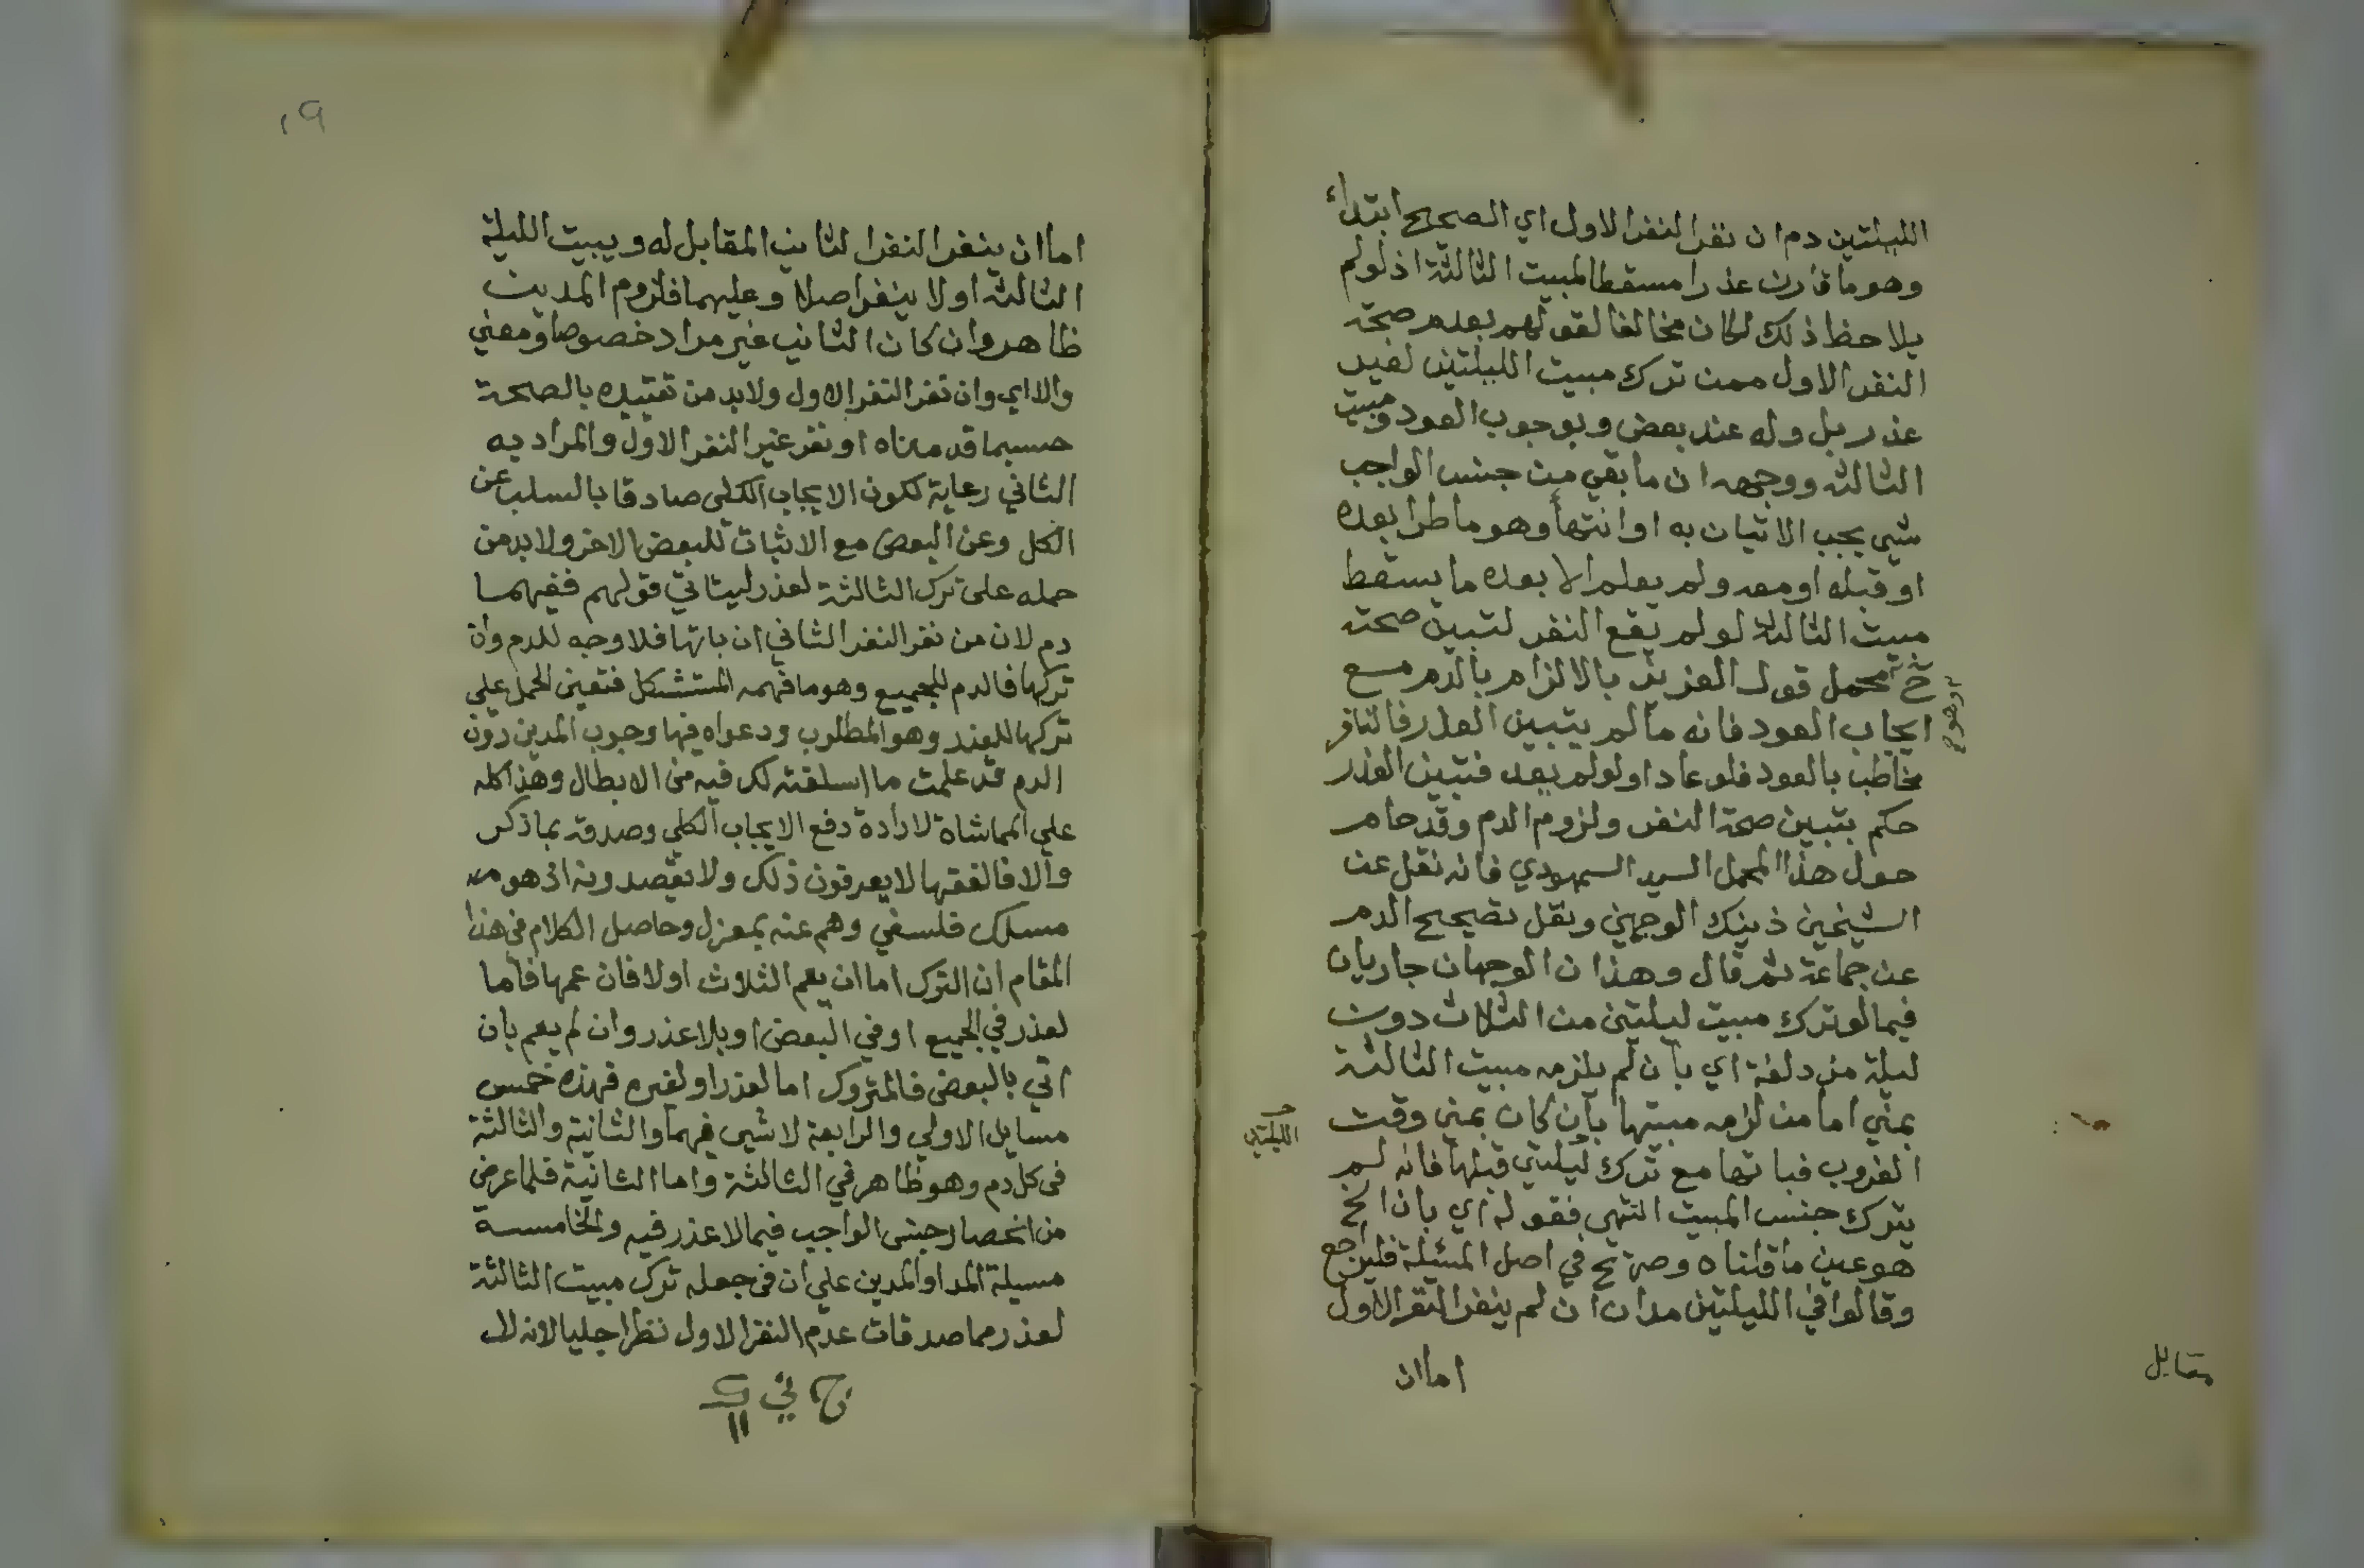 الليلتين دم ان نفر النفر الاول اي الصحيح ابتداء
وهو ما قارن عذرا مسقطا لمبيت الثالثة اذ لو لم
يلاحظ ذلك لكان مخالفا لقولهم بعدم صحة
النفر الاول ممن ترك مبيت الليلتين لغير
عذر بل وله عند بعض وبوجوب العود ومبيت
الثالثه ووجهه ان ما بقي من جنس الواجب
شي يجب الاتيان به او انتهأ وهو ما طرا بعده
او قبله او معه ولم يعلم الا بعده ما يسقط
مبيت الثالثة لو لم يقع النفر لتبين صحته
محمل قول العزيز بالالزام بالدم مع
ايجاب العود فانه ما لم يتبين العذر فالنافر
مخاطب بالعود فلو عاد او لو لم يعد فتبين العذر
حكم بتبين صحة النفر ولزوم الدم وقد حام
حول هذا المحمل السيد السمهودي فانه نقل عن
الشيخين ذينك الوجهين ونقل تصحيح الدم
عن جماعة ثم قال وهذان الوجهان جاريان
فيما لو ترك مبيت ليلتين من الثلاث دون
ليلة مزدلفة اي بان لم يلزمه مبيت الثالثة
بمني اما من لزمه مبيتها بان كان بمني وقت
الغروب فباتها مع ترك ليلتي قبلها فانه لم
يترك جنس المبيت انتهي فقوله اي بان الخ
هو عين ما قلناه وصرح في اصل المسئلة فليراجع
وقالوا في الليلتين مدان ان لم ينفر النفر الاول
اما ان
مقابل
الليلتين
١٩
اما ان ينفر النفر الثاني المقابل له ويبيت الليلة
الثالثه اولا ينفر اصلا وعليهما فلزوم المدين
ظاهر وان كان الثاني غير مراد خصوصا ومعني
والا اي وان نفر النفر الاول ولابد من تقييده بالصحة
حسبما قدمناه او نفر غير النفر الاول والمراد به
الثاني رعاية لكون الايجاب الكلي صادقا بالسلب عن
الكل وعن البعض مع الاثبات للبعض الاخر ولابد من
حمله على ترك الثالثة لعذر ليتاتي قولهم ففيهما
دم لان من نفر النفر الثاني ان باتها فلا وجه للدم وان
تركها فالدم للجميع وهو ما فهمه المستشكل فتعين الحمل علي
تركها للعذر وهو المطلوب ودعواه فيها وجوب المدين دون
الدم قد علمت ما اسلفته لك فيه من الابطال وهذا كله
علي المماشاة لارادة دفع الايجاب الكلي وصدقه بما ذكر
والا فالفقها لا يعرفون ذلك ولا يقصدونه اذ هو
مسلك فلسفي وهم عنه بمعزل وحاصل الكلام في هذا
المقام ان الترك اما ان يعم الثلاث اولا فان عمها فاما
لعذر في الجميع او في البعض او بلا عذر وان لم يعم بان
اتي بالبعض فالمتروك اما لعذر او لغيره فهذه خمس
مسايل الاولي والرابعة لا شي فيهما والثانية والثالثة
في كل دم وهو ظاهر في الثالثة واما الثانية فلما عرض
من انحصار جنس الواجب فيما لا عذر فيه والخامسة
مسيلة المد او المدين علي ان في جعله ترك مبيت الثالثة
لعذر مما صدقات عدم النفر الاول نظرا جليا لانه